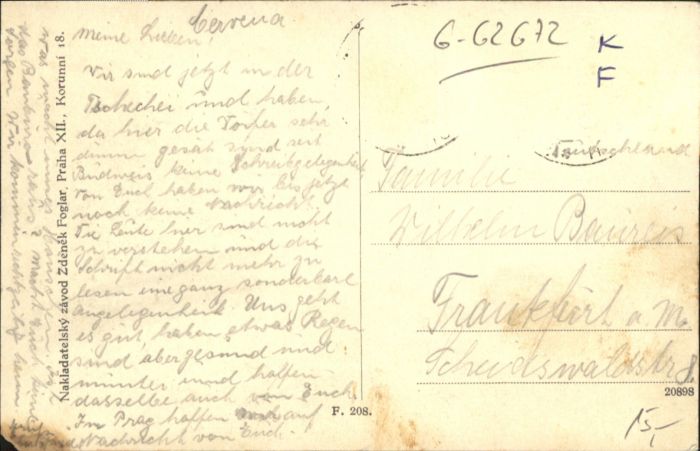 Červena
Meine Lieben!
Wir sind jetzt in der
Tschechei und haben,
da hier die Dörfer sehr
dünn gesät sind seit
Budweis keine Schreibgelegenheit
Von Euch haben wir bis jetzt
noch keine Nachricht.
Die Leute hier sind nicht
zu verstehen und die
Schrift nicht mehr zu
lesen eine ganz sonderbare
Angelegenheit. Uns geht
es gut, haben etwas Regen
sind aber gesund und
munter und hoffen
dasselbe auch von Euch.
Im Prag hoffen auf
Nachricht von Euch.
Was macht
das
Sorgen Wir kommen
Nakladatelský závod Zdeněk Foglar, Praha XII., Korunní 18.
F. 208.
6-62672
K
F
Familie
Wilhelm Baureis
Frankfurt a M.
20898
15,-